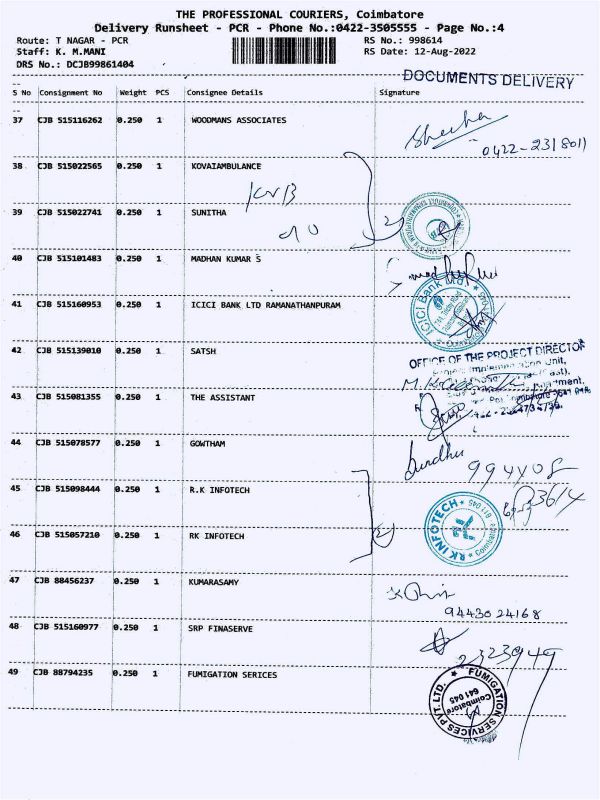 THE PROFESSIONAL COURIERS, Coimbatore
Delivery Runsheet - PCR - Phone No.:0422-3505555 - Page No.:4
Route: T NAGAR - PCR RS No.: 998614
Staff: K. M.MANI RS Date: 12-Aug-2022
DRS No.: DCJB99861404
DOCUMENTS DELIVERY
S No Consignment No Weight PCS Consignee Details Signature
37 CJB 515116262 0.250 1 WOODMANS ASSOCIATES
0422-2318011
38 CJB 515022565 0.250 1 KOVAIAMBULANCE
KVB
39 CJB 515022741 0.250 1 SUNITHA
2
40 CJB 515101483 0.250 1 MADHAN KUMAR S
ICICI Bank Ltd.
41 CJB 515160953 0.250 1 ICICI BANK LTD RAMANATHANPURAM
42 CJB 515139010 0.250 1 SATSH
OFFICE OF THE PROJECT DIRECTOR
43 CJB 515081355 0.250 1 THE ASSISTANT
44 CJB 515078577 0.250 1 GOWTHAM
45 CJB 515098444 0.250 1 R.K INFOTECH
RK INFOTECH Coimbatore 641 045
46 CJB 515057210 0.250 1 RK INFOTECH
2
47 CJB 88456237 0.250 1 KUMARASAMY
9443024168
48 CJB 515160977 0.250 1 SRP FINASERVE
2323949
49 CJB 88794235 0.250 1 FUMIGATION SERICES
FUMIGATION SERVICES PVT. LTD.
Coimbatore
641 045